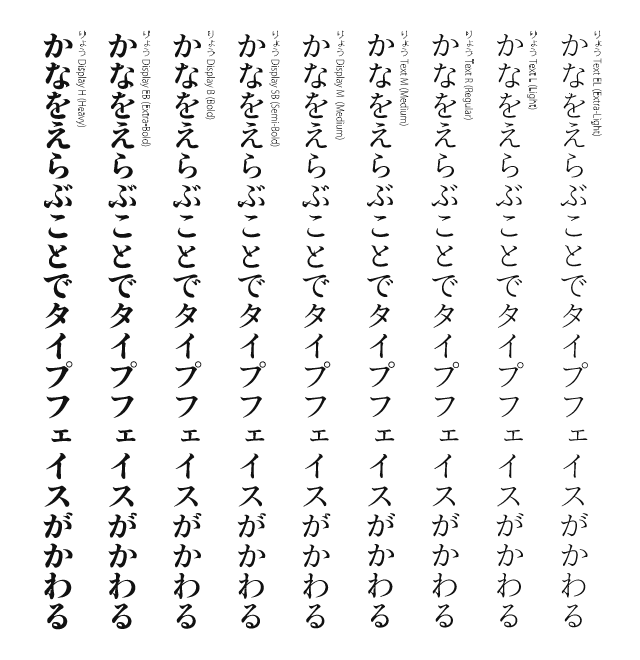 りょう Text EL (Extra-Light)
かなをえらぶことでタイプフェイスがかわる
りょう Text L (Light)
かなをえらぶことでタイプフェイスがかわる
りょう Text R (Regular)
かなをえらぶことでタイプフェイスがかわる
りょう Text M (Medium)
かなをえらぶことでタイプフェイスがかわる
りょう Display M (Medium)
かなをえらぶことでタイプフェイスがかわる
りょう Display SB (Semi-Bold)
かなをえらぶことでタイプフェイスがかわる
りょう Display B (Bold)
かなをえらぶことでタイプフェイスがかわる
りょう Display EB (Extra-Bold)
かなをえらぶことでタイプフェイスがかわる
りょう Display H (Heavy)
かなをえらぶことでタイプフェイスがかわる